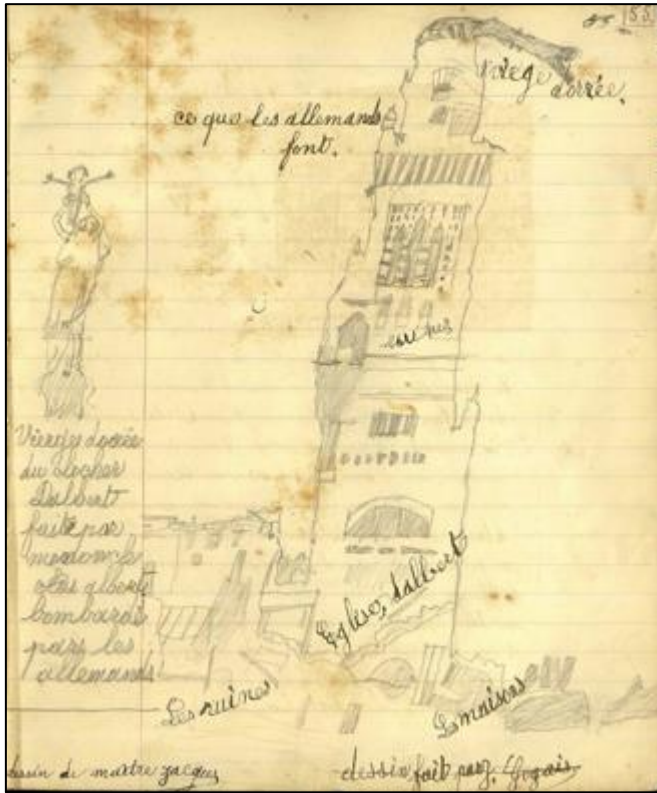 155
Vierge
dorrée.
ce que les allemands
font.
Vierge dorrée
du clocher
Dalbert
faite par
bombardé
pars les
allemands
Eglise, dalbert
Les ruines
Les maisons
dessin de maître jacques
dessin fait par J.